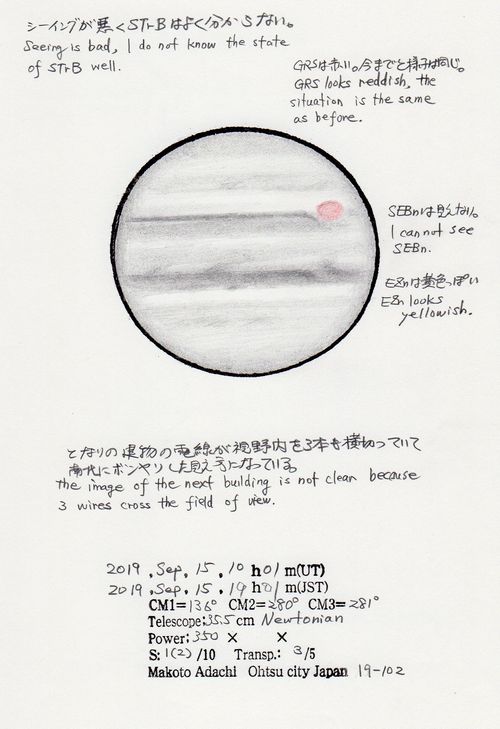 シーイングが悪くSTrBはよく分からない。
Seeing is bad, I do not know the state
of STrB well.
GRSは赤い。今までと様子は同じ。
GRS looks reddish, the
situation is the same
as before.
SEBnは見えない。
I cannot see
SEBn.
EZnは黄色っぽい
EZn looks
yellowish.
となりの建物の電線が視野内を3本も横切っていて
ボンヤリした見え方になっている。
the image of the next building is not clear because
3 wires cross the field of view.
2019, Sep, 15, 10 h 01 m(UT)
2019, Sep, 15, 19 h 01 m(JST)
CM1=136° CM2=280° CM3=281°
Telescope:35.5 cm Newtonian
Power:350 × ×
S: 1(2) /10 Transp.: 3/5
Makoto Adachi Ohtsu city Japan 19-102